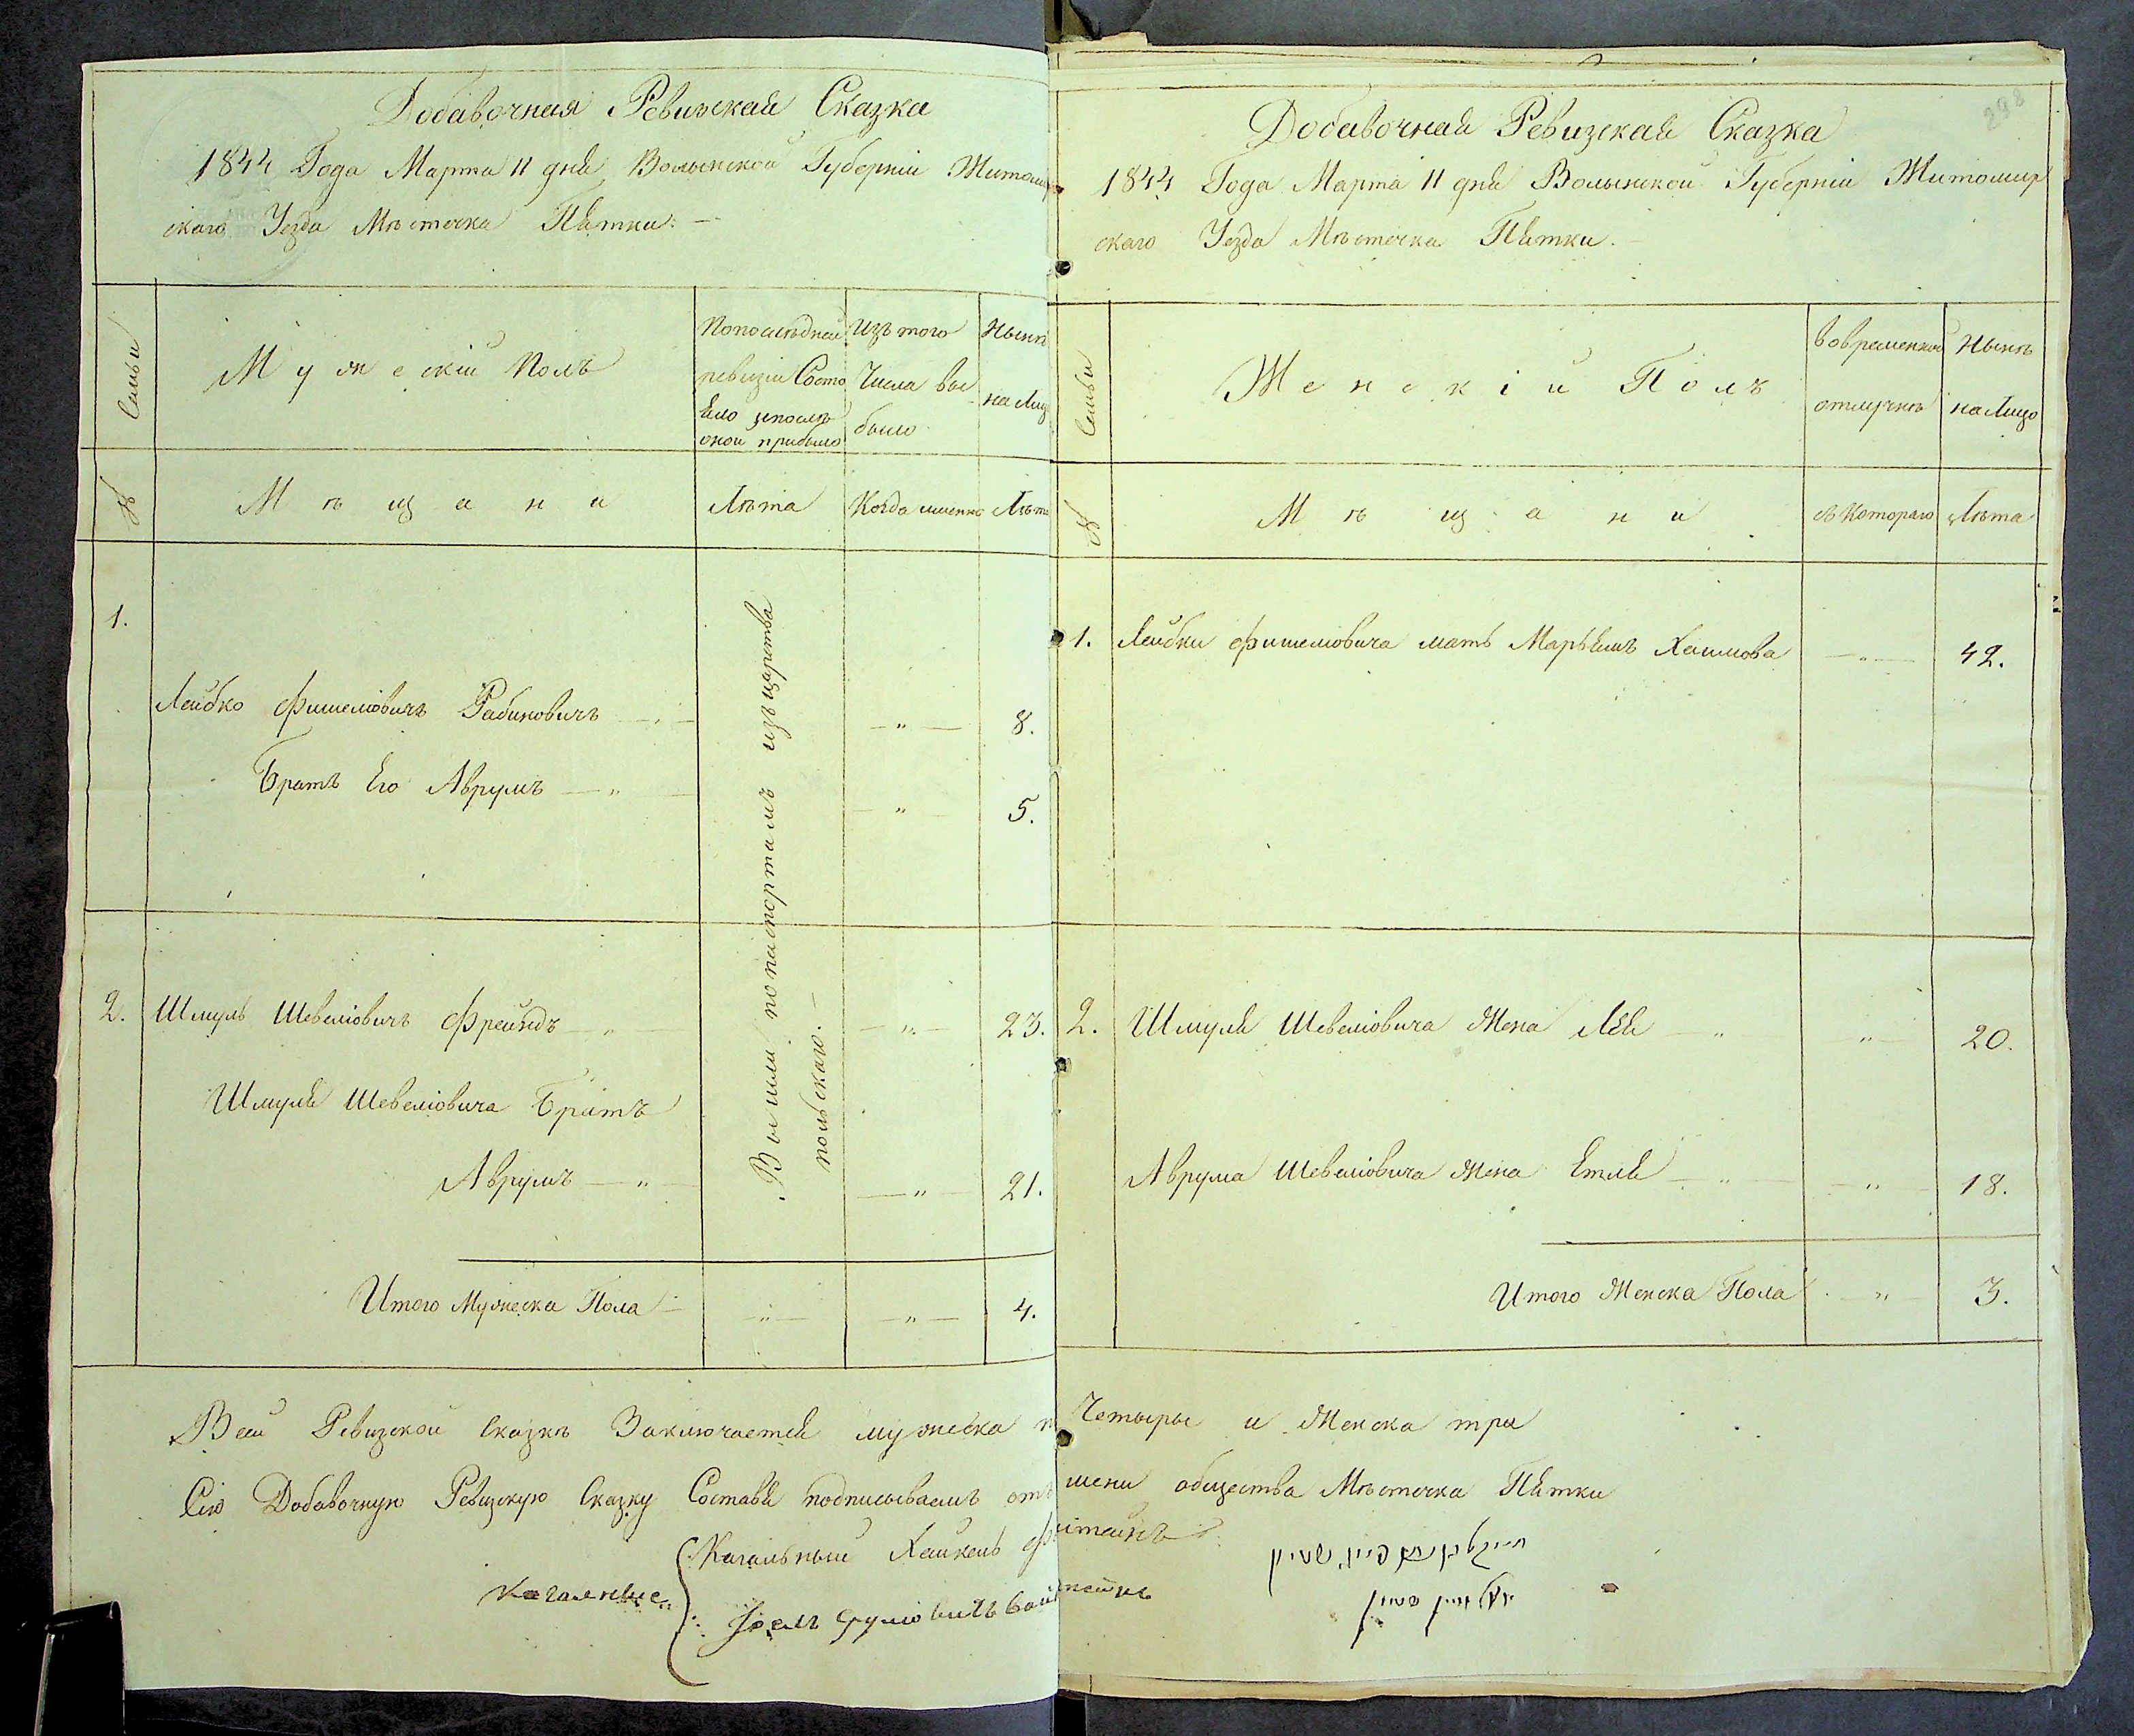 Добавочная Ревизская Сказка
1844 Года Марта 11 дня Волынской Губерніи Житомир
скаго Уезда Мѣстечка Пятки. —
Семьи
Мужескій Полъ
Попослѣдней
ревизіи Состо
яло ипослѣ
оной прибыло
Изъ того
Числа вы
было
Нынѣ
на Лиц
№
Мѣщани
Лѣта
Когда именно
Лѣта
1.
Лейбко Фишеліовичъ Рабиновичъ — „ — 8.
Братъ Его Аврумъ — „ — „ — 5.
Вышли попаспортамъ изъ царства
польскаго. —
2. Шмуль Шевеліовичъ Фрейндъ — „ — „ — 23.
Шмуля Шевеліовича Братъ
Аврумъ — „ — „ — 21.
Итого Мужеска Пола — „ — „ — 4.
Добавочная Ревизская Сказка
298
1844 Года Марта 11 дня Волынской Губерніи Житомир
скаго Уезда Мѣстечка Пятки. —
Семьи
Женскій Полъ
Вовременной
отлучкѣ
Нынѣ
на Лицо
№
Мѣщани
съ Котораго
Лѣта
1. Лейбки Фишеліовича мать Марьямъ Хаимова — „ — 42.
2. Шмуля Шевеліовича Жена Лея — „ — „ — 20.
Аврума Шевеліовича Жена Етля — „ — „ — 18.
Итого Женска Пола — „ — 3.
Всей Ревизской Сказкѣ Заключается мужеска п Четыре и Женска три
Сію Добавочную Ревизскую Сказку Составя подписываемъ отъ имени общества Мѣстечка Пятки
Кагальный Хайкель
Кагалные